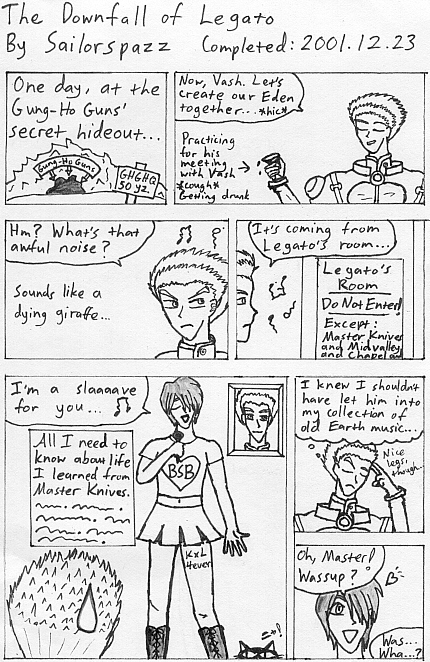 The Downfall of Legato
By Sailorspazz Completed: 2001.12.23
One day, at the
Gung-Ho Guns'
secret hideout...
Gung-Ho Guns
GHGHQ
50 yz.
Now, Vash. Let's
create our Eden
together...*hic*
Practicing
for his
meeting
with Vash
*cough*
Getting drunk
Hm? What's that
awful noise?
Sounds like a
dying giraffe...
It's coming from
Legato's room...
Legato's
Room
Do Not Enter!
Except:
Master Knives
and Midvalley
and Chapel
I'm a slaaaave
for you...
All I need to
know about life
I learned from
Master Knives.
BSB
KxL
4ever
I knew I shouldn't
have let him into
my collection of
old Earth music...
Nice
legs,
though...
Oh, Master!
Wassup?
Was...
Wha...?